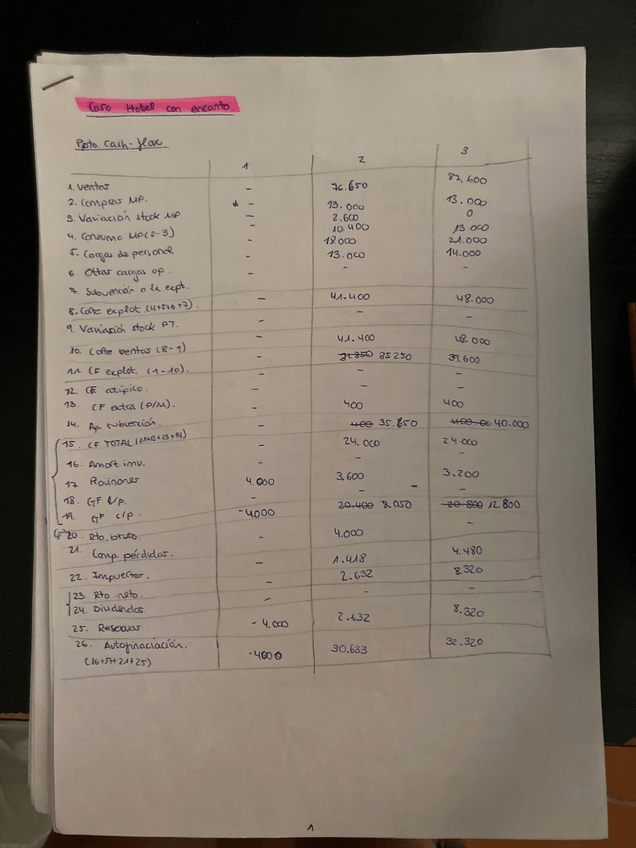 Caso Hotel con encanto
Ppto Cash-flow
1 2 3
1. Ventas - 76.650 87.600
2. Compras MP. - 13.000 13.000
3. Variación stock MP - 2.600 0
4. Consumo MP (2-3) - 10.400 13.000
5. Cargas de personal - 18.000 21.000
6. Otras cargas op. - 13.000 14.000
7. Subvención a la expt. - - -
8. Coste explot (4+5+6+7). - 41.400 48.000
9. Variación stock PT. -
10. Coste ventas (8-9) - 41.400 48.000
11. CF explot. (1-10). - 35250 39600
12. CF atípico. - - -
13. CF extra (P/M). - - -
14. Ap subvención. - 400 400
15. CF TOTAL (11+12+13+14) - 35.650 40.000
16. Amort. inmv. - 24.000 24.000
17. Provisiones - - -
18. GF l/p. 4.000 3.600 3.200
19. GF c/p. - - -
20. Rto. bruto. -4000 8.050 12.800
21. Comp. pérdidas. - 4.000 -
22. Impuestos. - 1.418 4.480
23. Rto neto. - 2.632 8.320
24. Dividendos - - -
25. Reservas - 4.000 2.632 8.320
26. Autofinaciación. -4000 30.633 32.320
(16+17+21+25)
1